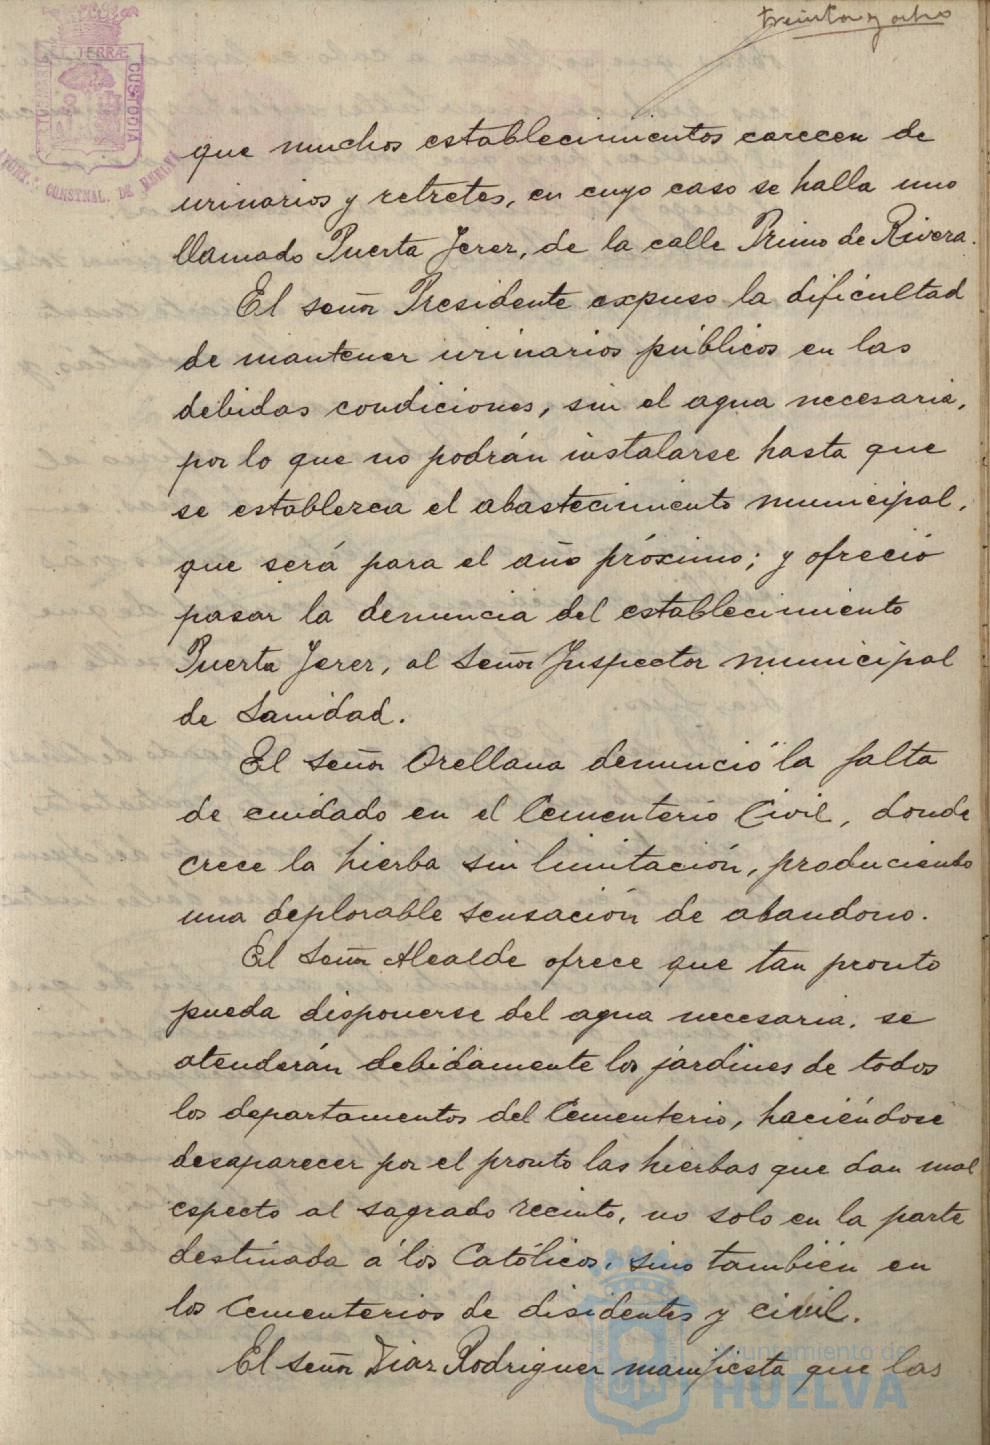 treinta y ocho
TERRÆ
CUSTODIA
CONSTNAL. DE
que muchos establecimientos carecen de
urinarios y retretes, en cuyo caso se halla uno
llamado Puerta Jerez, de la calle Primo de Rivera.
El señor Presidente expuso la dificultad
de mantener urinarios públicos en las
debidas condiciones, sin el agua necesaria,
por lo que no podrán instalarse hasta que
se establezca el abastecimiento municipal,
que será para el año próximo; y ofreció
pasar la denuncia del establecimiento
Puerta Jerez, al señor Inspector municipal
de Sanidad.
El señor Orellana denunció la falta
de cuidado en el Cementerio Civil, donde
crece la hierba sin limitación, produciendo
una deplorable sensación de abandono.
El señor Alcalde ofrece que tan pronto
pueda disponerse del agua necesaria, se
atenderán debidamente los jardines de todos
los departamentos del Cementerio, haciéndose
desaparecer por el pronto las hierbas que dan mal
especto al sagrado recinto, no solo en la parte
destinada á los Católicos, sino también en
los Cementerios de disidentes y civil.
El señor Diaz Rodriguez manifiesta que las
Ayuntamiento de
HUELVA